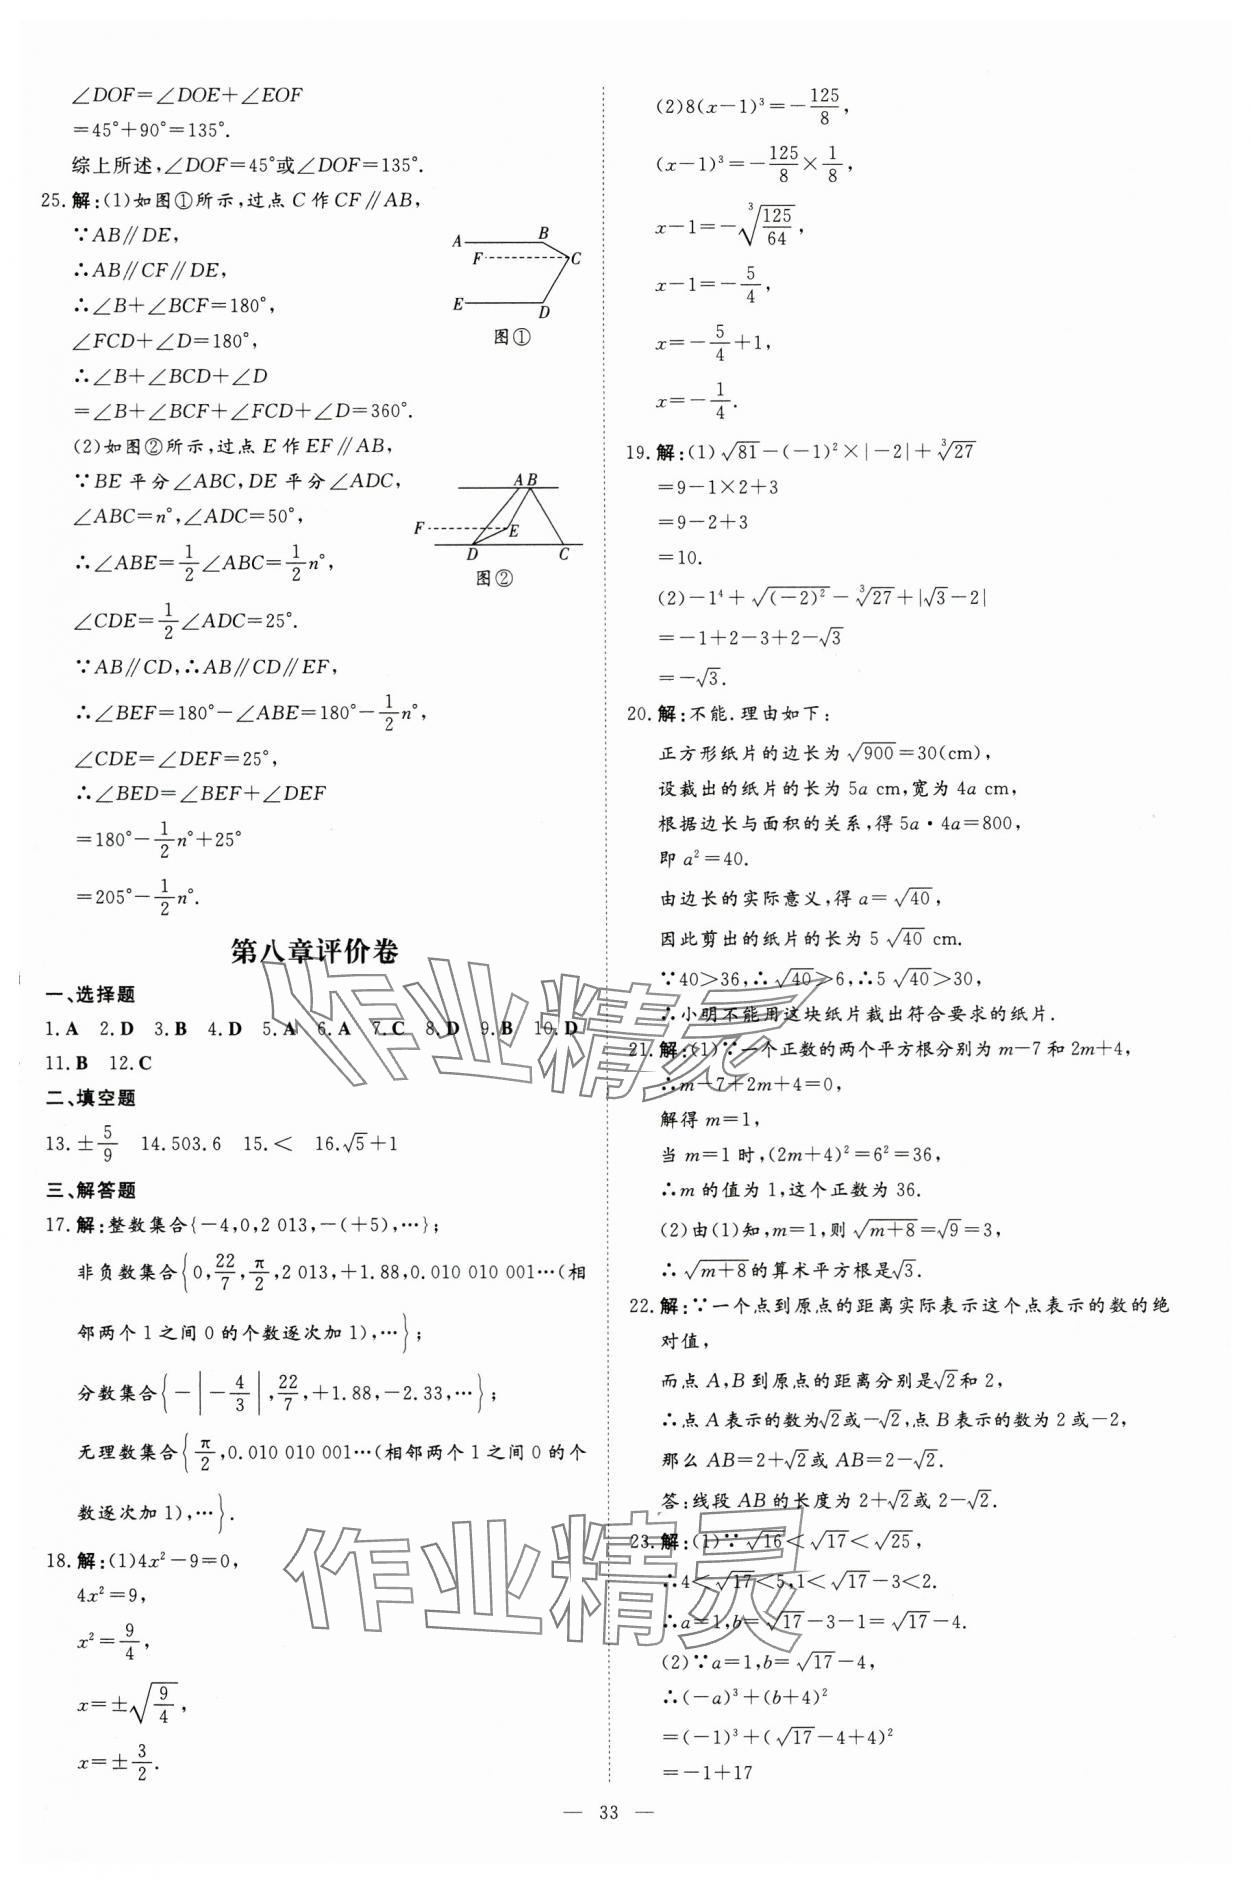 ∠DOF=∠DOE+∠EOF
=45°+90°=135°.
综上所述,∠DOF=45°或∠DOF=135°.
25.解:(1)如图①所示,过点 C 作 CF∥AB,
∵AB∥DE,
∴AB∥CF∥DE,
∴∠B+∠BCF=180°,
∠FCD+∠D=180°,
∴∠B+∠BCD+∠D
=∠B+∠BCF+∠FCD+∠D=360°.
A B
F C
E D
图①
(2)如图②所示,过点 E 作 EF∥AB,
∵BE 平分∠ABC,DE 平分∠ADC,
∠ABC=n°,∠ADC=50°,
∴∠ABE=1/2∠ABC=1/2n°,
∠CDE=1/2∠ADC=25°.
∵AB∥CD,∴AB∥CD∥EF,
∴∠BEF=180°-∠ABE=180°-1/2n°,
∠CDE=∠DEF=25°,
∴∠BED=∠BEF+∠DEF
=180°-1/2n°+25°
=205°-1/2n°.
A B
F E
D C
图②
第八章评价卷
一、选择题
1.A 2.D 3.B 4.D 5.A 6.A 7.C 8.D 9.B 10.D
11.B 12.C
二、填空题
13.±5/9 14.503.6 15.< 16.√5+1
三、解答题
17.解:整数集合{-4,0,2 013,-(+5),…};
非负数集合{0,22/7,π/2,2 013,+1.88,0.010 010 001…(相
邻两个 1 之间 0 的个数逐次加 1),…};
分数集合{-|-4/3|,22/7,+1.88,-2.33,…};
无理数集合{π/2,0.010 010 001…(相邻两个 1 之间 0 的个
数逐次加 1),…}.
18.解:(1)4x²-9=0,
4x²=9,
x²=9/4,
x=±√(9/4),
x=±3/2.
(2)8(x-1)³=-125/8,
(x-1)³=-125/8×1/8,
x-1=-³√(125/64),
x-1=-5/4,
x=-5/4+1,
x=-1/4.
19.解:(1)√81-(-1)²×|-2|+³√27
=9-1×2+3
=9-2+3
=10.
(2)-1⁴+√(-2)²-³√27+|√3-2|
=-1+2-3+2-√3
=-√3.
20.解:不能.理由如下:
正方形纸片的边长为√900=30(cm),
设裁出的纸片的长为 5a cm,宽为 4a cm,
根据边长与面积的关系,得 5a·4a=800,
即 a²=40.
由边长的实际意义,得 a=√40,
因此剪出的纸片的长为 5√40 cm.
∵40>36,∴√40>6,∴5√40>30,
∴小明不能用这块纸片裁出符合要求的纸片.
21.解:(1)∵一个正数的两个平方根分别为 m-7 和 2m+4,
∴m-7+2m+4=0,
解得 m=1,
当 m=1 时,(2m+4)²=6²=36,
∴m 的值为 1,这个正数为 36.
(2)由(1)知,m=1,则√(m+8)=√9=3,
∴√(m+8)的算术平方根是√3.
22.解:∵一个点到原点的距离实际表示这个点表示的数的绝
对值,
而点 A,B 到原点的距离分别是√2和 2,
∴点 A 表示的数为√2或-√2,点 B 表示的数为 2 或-2,
那么 AB=2+√2或 AB=2-√2.
答:线段 AB 的长度为 2+√2或 2-√2.
23.解:(1)∵√16<√17<√25,
∴4<√17<5,1<√17-3<2.
∴a=1,b=√17-3-1=√17-4.
(2)∵a=1,b=√17-4,
∴(-a)³+(b+4)²
=(-1)³+(√17-4+4)²
=-1+17
— 33 —
作业精灵
作业精灵